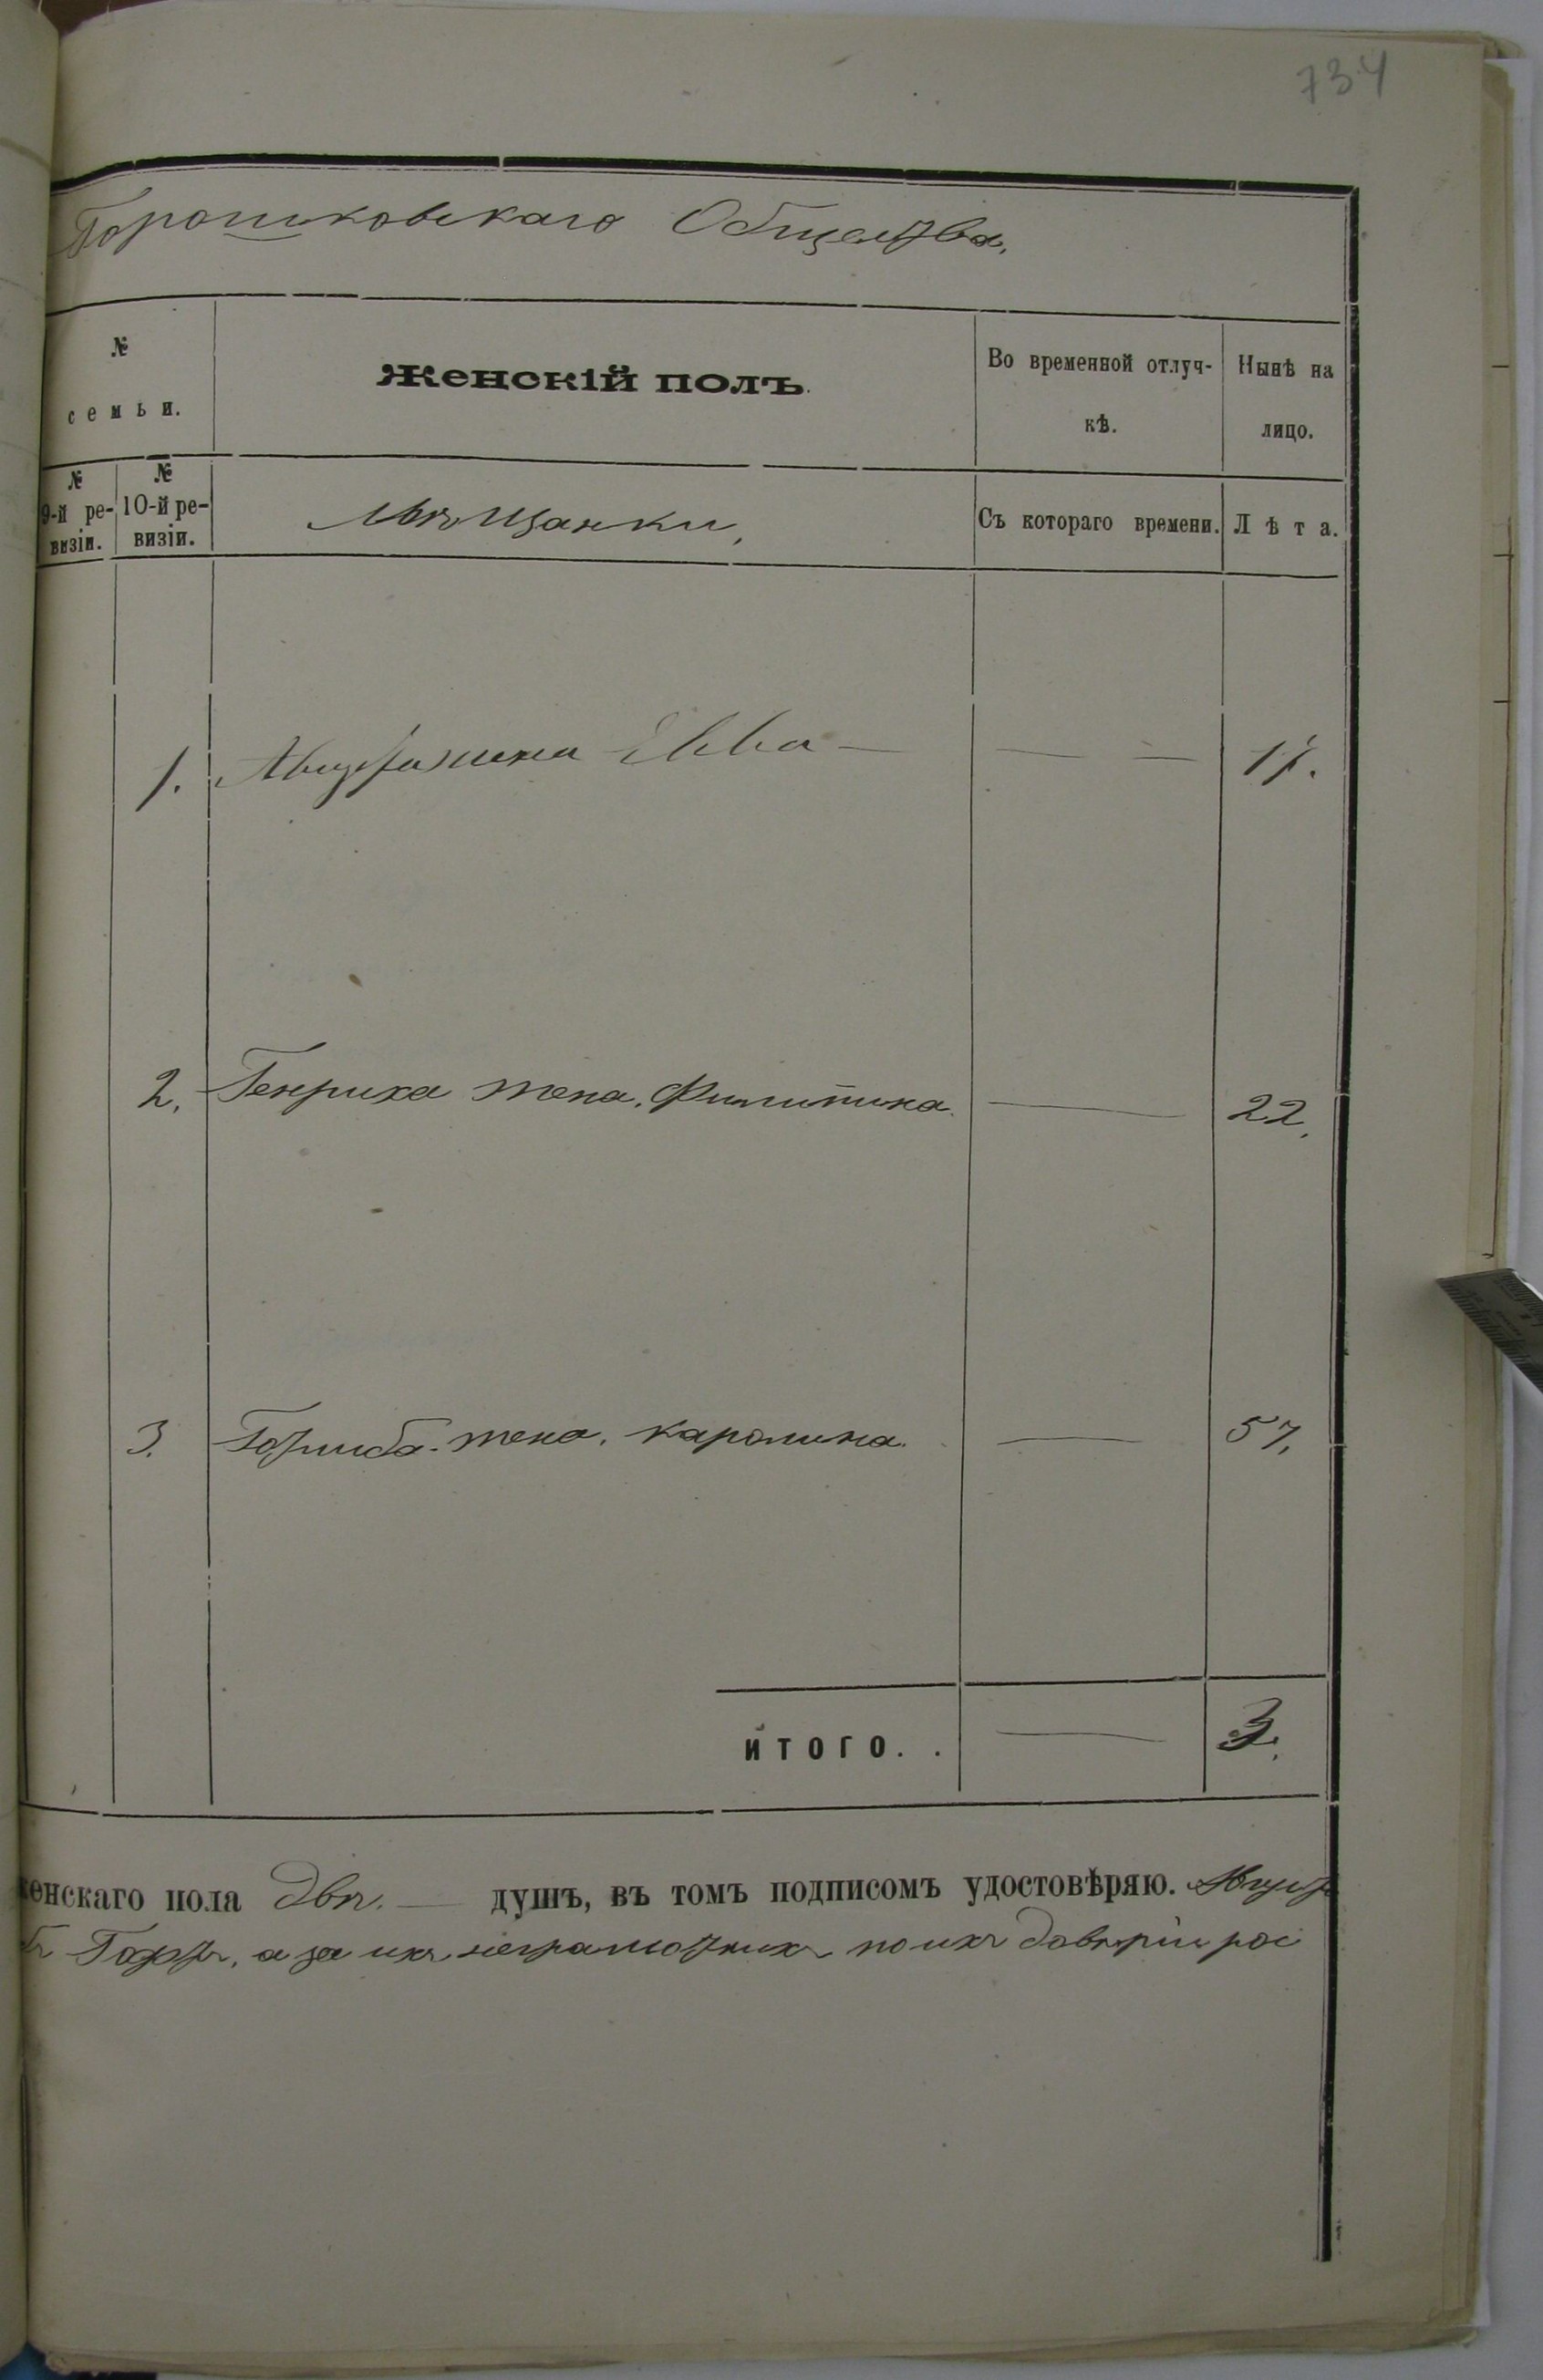 734
Горошковскаго Общества,
№
семьи.
Женскій полъ.
Во временной отлуч-
кѣ.
Нынѣ на
лицо.
№
9-й ре-
визіи.
№
10-й ре-
визіи.
Мѣщанки,
Съ котораго времени.
Лѣта.
1. Евва — — —
2. Генриха жена. Филипина. — 22.
3. Готлиба. жена. каролина. — 57.
ИТОГО. . — 3.
женскаго пола двѣ. — душъ, въ томъ подписомъ удостовѣряю.
а за ихъ неграмотныхъ по ихъ довѣрію рос